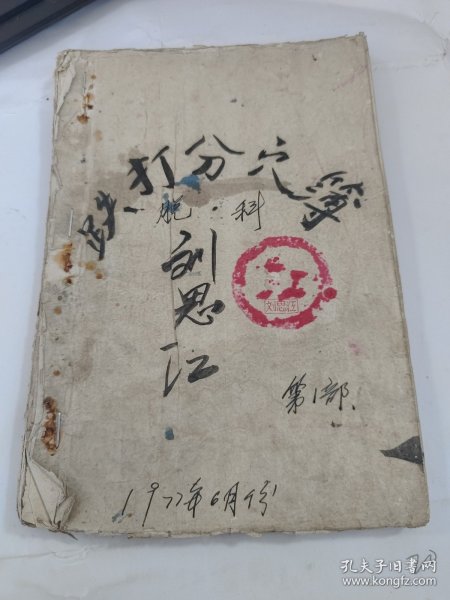 跌打分穴簿
科
刘思江
江
刘思江
第1部
1977年6月份
孔夫子旧书网
www.kongfz.com